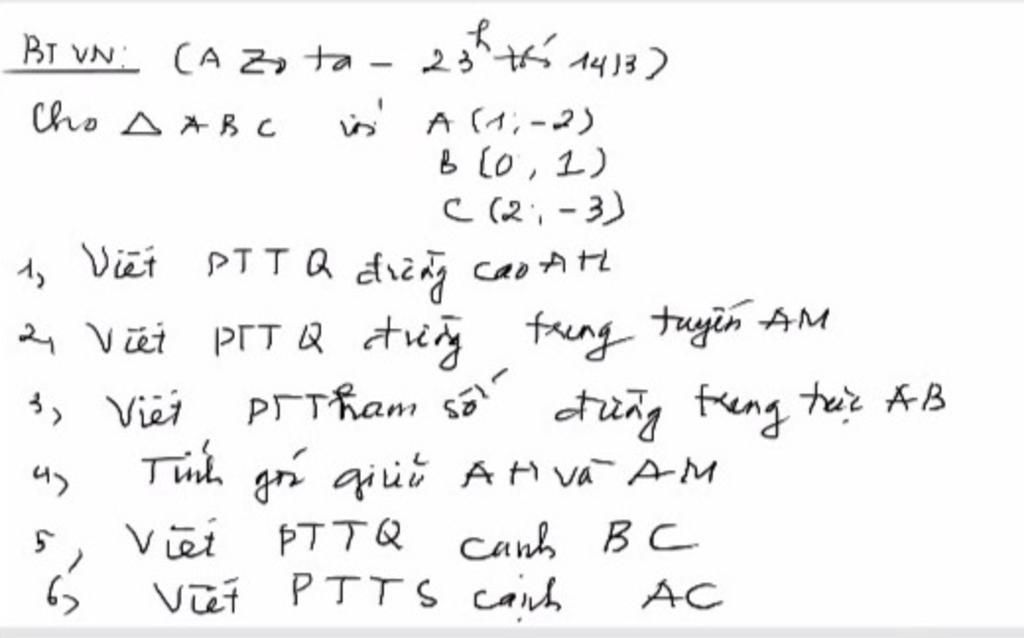 BTVN: (A Zota - 23h t5 14/3)
Cho △ ABC với A(1; -2)
B(0, 1)
C(2; -3)
1, Viết PTTQ đường cao AH
2, Viết PTTQ đường trung tuyến AM
3, Viết PTTham số đường trung trực AB
4, Tính góc giữa AH và AM
5, Viết PTTQ cạnh BC
6, Viết PTTS cạnh AC